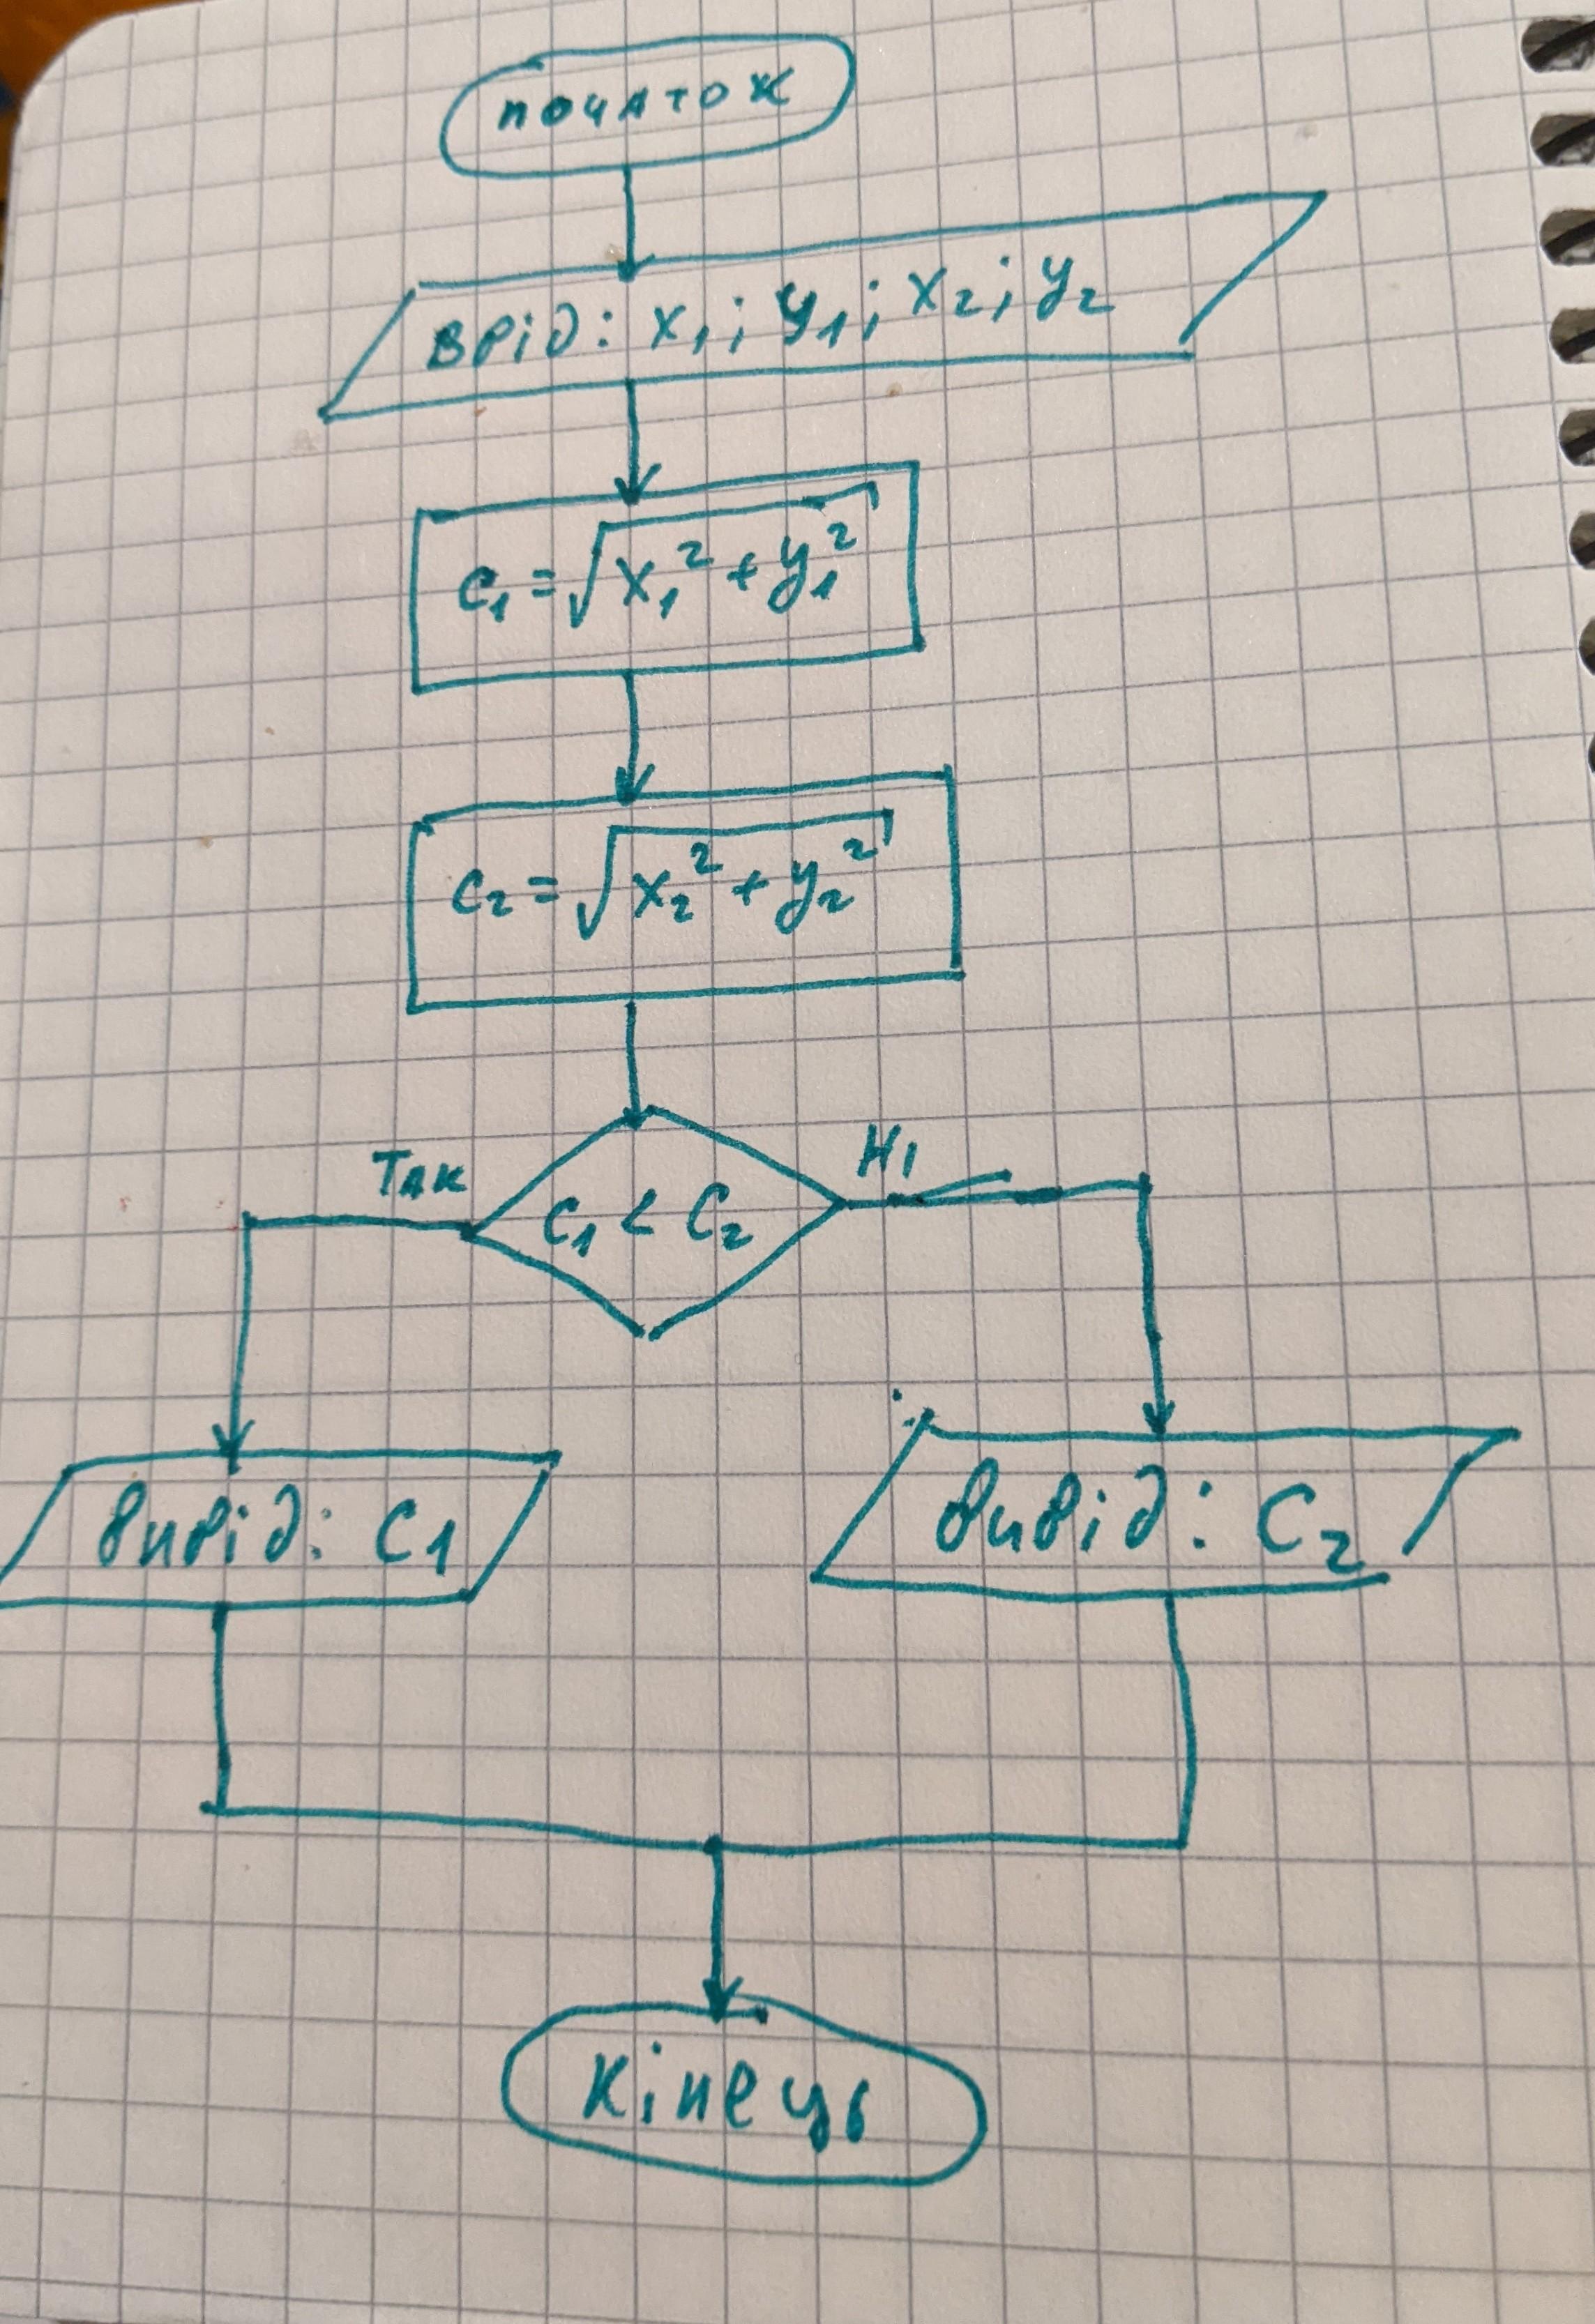 початок
ввід: x₁; y₁; x₂; y₂
c₁ = √x₁² + y₁²
c₂ = √x₂² + y₂²
Так
Ні
C₁ < C₂
вивід: C1
вивід: C₂
кінець